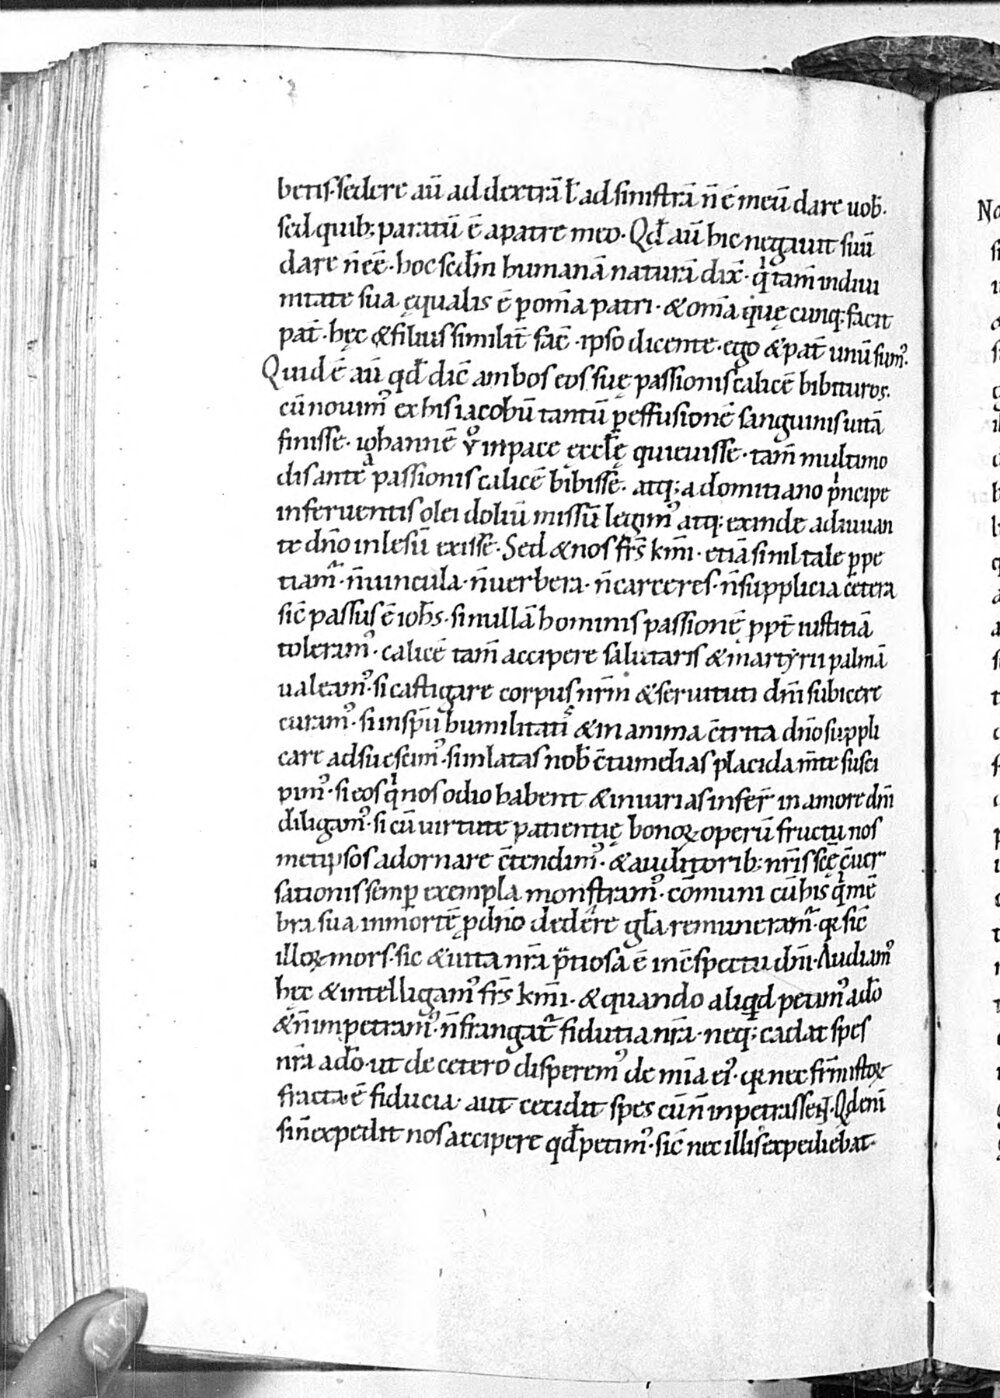 betis· sedere aū ad dextrā ł ad sinistrā n̄ ē meū dare uob̄·
sed quib; paratū ē a patre meo· Qd̄ aū hic negauit suū
dare n̄ ēē· hoc sedm̄ humanā naturā dix̄· q̇ tam̄ indiui
nitate sua ęqualis ē p om̄a patri· & om̄a quęcunq; facit
pat̄· hęc & filius similit̄ fac̄· ipso dicente· ego & pat̄ unū sum᷒·
Quid ē aū qd̄ dic̄ ambos eos suę passionis calicē bibituros·
cū nouim᷒ ex his iacobū tantū p effusionē sanguinis uitā
finisse· iohannē v̊ in pace ęccl̄ę quieuisse· tam̄ multimo
dis ante passionis calicē bibisse· atq; a domitiano pͥncipe
in feruentis olei doliū missū legim᷒ atq; exinde adiuuan
te dn̄o inlesū exisse· Sed & nos frs̄ km̄i· etiā si nil tale ꝑpe
tiam᷒· n̄ uincula· n̄ uerbera· n̄ carceres· n̄ supplicia cetera
sic̄ passus ē ioħs· si nullā hominis passionē ppt̄ iustitiā
toleram᷒· calicē tam̄ accipere salutaris & martyrii palmā
ualeam᷒· si castigare corpus nr̄m & seruituti dn̄i subicere
curam᷒· si in sp̄u humilitatis & in anima c̄trita dn̄o suppli
care adsuescim᷒· si inlatas nob̄ c̄tumelias placida m̄te susci
pim᷒· si eos q̇ nos odio habent & iniurias infer̄ in amore dn̄i
diligam᷒· si cū uirtute patientię bonoꝝ operū fructu nos
metipsos adornare c̄tendim᷒· & auditorib; nr̄is scę̄ c̄uer
sationis semꝑ exempla monstram᷒· cōmuni cū his q̇ mē
bra sua in mortē p dn̄o dedere gl̄a remuneram᷒· qꝛ sic̄
illoꝝ mors· sic & uita nr̄a p̄tiosa ē in c̄spectu dn̄i· Audiam᷒
hęc & intelligam᷒ frs̄ km̄i· & quando aliqd petim᷒ a dō
& n̄ impetram᷒· n̄ frangat᷑ fidutia nr̄a· neq; cadat spes
nr̄a a dō· ut de cetero disperem᷒ de mīa ei᷒· qꝛ nec
fracta ē fiducia· aut cecidit spes cū n̄ inpetrasset·
si n̄ expedit nos accipere qd̄ petim᷒· sic̄ nec illis expediebat·